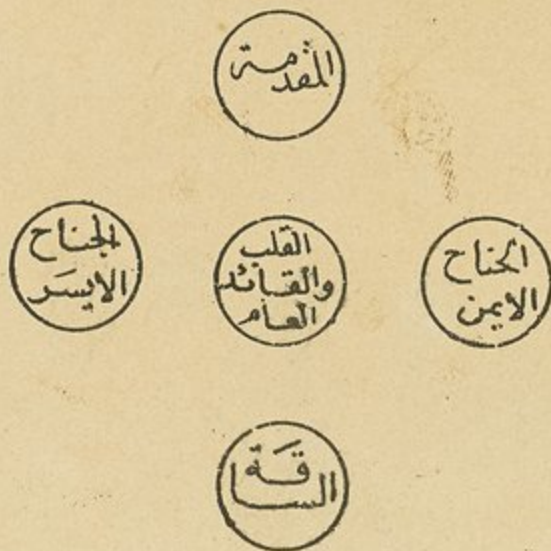 المقدمة
الجناح
الايمن
القلب
والقائد
العام
الجناح
الايسَر
الساقَة